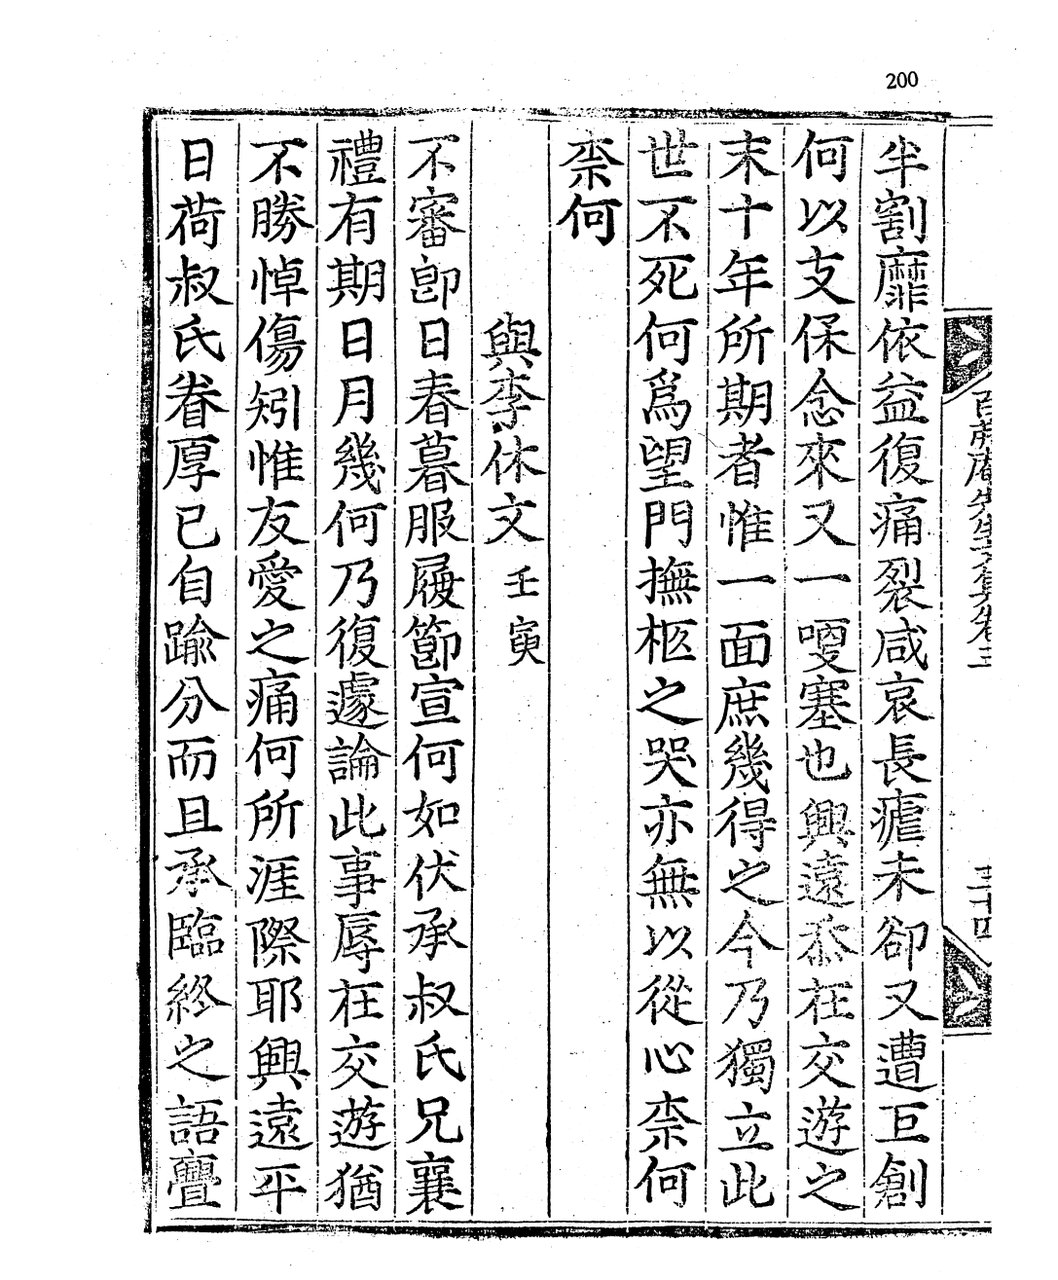 200
半割靡依益復痛裂咸哀長瘧未卻又遭巨創
何以支保念來又一哽塞也興遠忝在交遊之
末十年所期者惟一面庶幾得之今乃獨立此
世不死何爲望門撫柩之哭亦無以從心柰何
柰何
與李休文 壬寅
不審卽日春暮服履節宣何如伏承叔氏兄襄
禮有期日月幾何乃復遽論此事辱在交遊猶
不勝悼傷矧惟友愛之痛何所涯際耶興遠平
日荷叔氏眷厚已自踰分而且承臨終之語亹